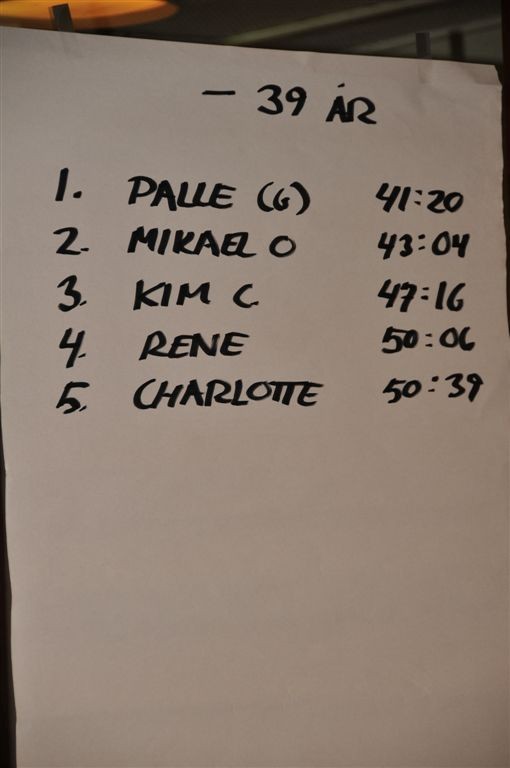 - 39 ÅR
1. PALLE (G) 41:20
2. MIKAEL O 43:04
3. KIM C 47:16
4. RENE 50:06
5. CHARLOTTE 50:39